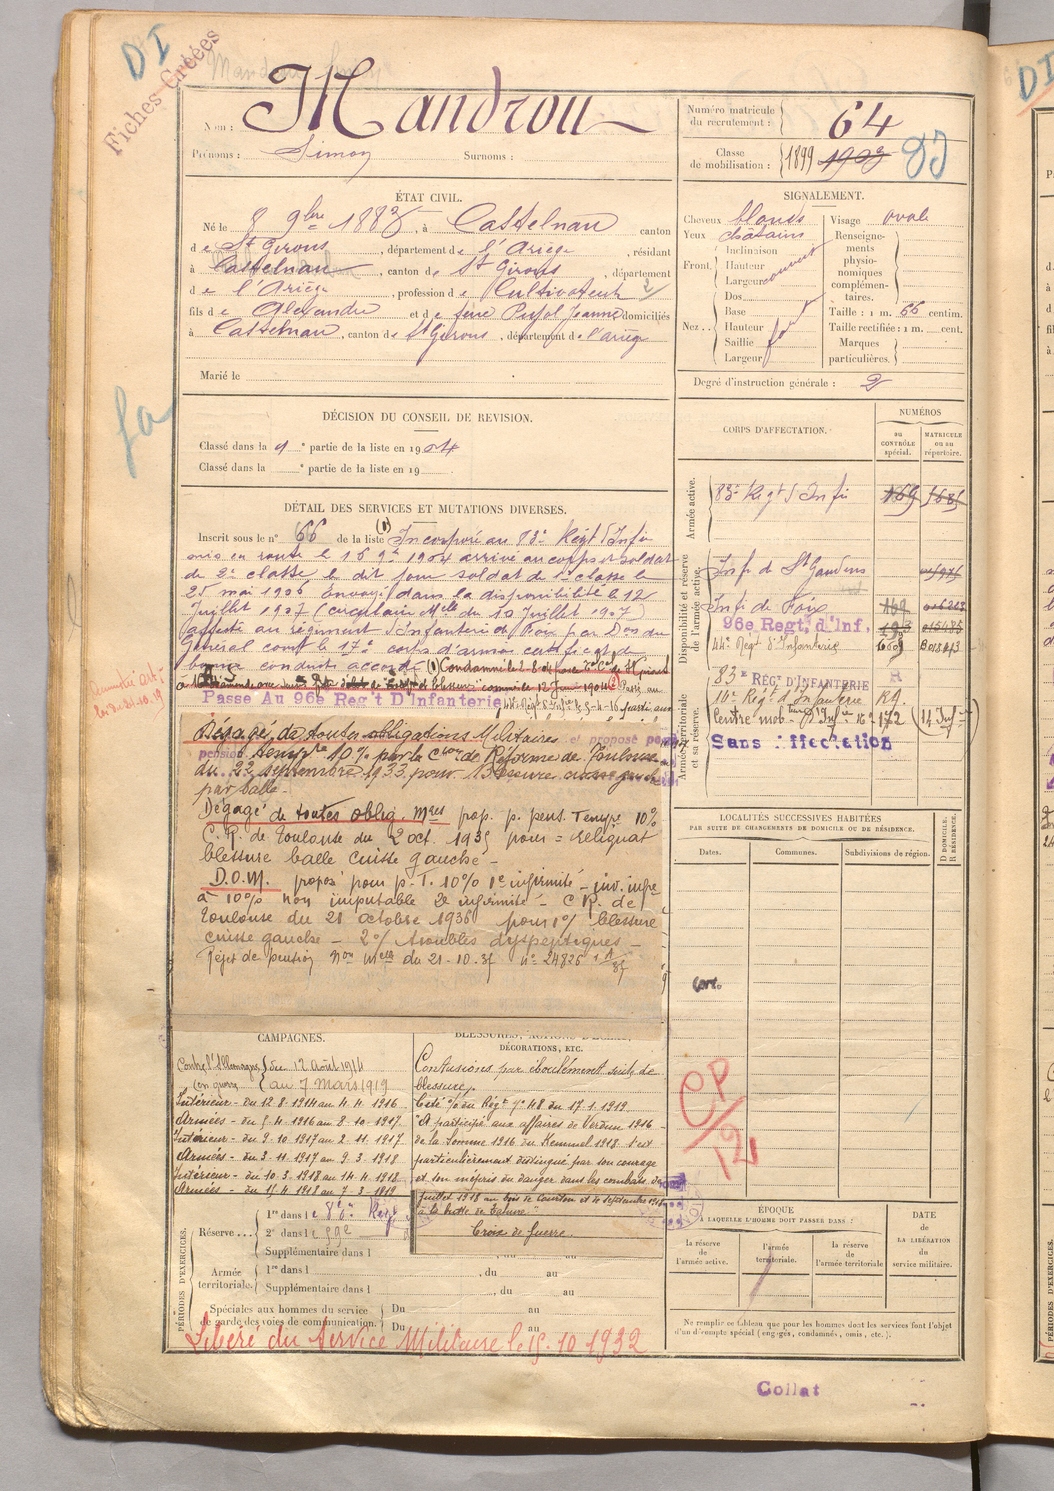 DI
Fiches Créées
Nom : Mandrou
Prénoms : Simon Surnoms :
Numéro matricule du recrutement : 64
Classe de mobilisation : 1899 1903
ÉTAT CIVIL.
Né le 8 9bre 1883, à Castelnau canton
de St Girons, département de l'Ariège, résidant
à Castelnau, canton de St Girons, département
de l'Ariège, profession de Cultivateur
fils de Alexandre et de feue Pujol Jeanne domiciliés
à Castelnau, canton de St Girons, département de l'ariège
Marié le
SIGNALEMENT.
Cheveux blonds
Yeux chatains
Front. Inclinaison
Hauteur
Largeur
Nez. Dos
Base
Hauteur
Saillie
Largeur
Visage ovale
Renseignements physionomiques complémentaires.
Taille : 1 m. 66 centim.
Taille rectifiée : 1 m. cent.
Marques particulières.
Degré d'instruction générale : 2
DÉCISION DU CONSEIL DE REVISION.
Classé dans la 1e partie de la liste en 1904
Classé dans la e partie de la liste en 19
DÉTAIL DES SERVICES ET MUTATIONS DIVERSES.
Inscrit sous le n° 66 de la liste (1) Incorporé au 83e Régt d'Infie
mis en route le 16 9bre 1904 arrivé au corps et soldat
de 2e classe le dit jour soldat de 1e classe le
25 mai 1906 Envoyé dans la disponibilité le 12
Juillet 1907 (circulaire Mlle du 10 Juillet 1907)
affecté au régiment d'Infanterie de Foix par Don du
Général comt le 17e corps d'armée certificat de
bonne conduite accordé
Passe Au 96e Reg't D'Infanterie
Dégagé de toutes obligations Militaires et proposé pour
pension tempre 10% par la Cion de Réforme de Toulouse
du 22 septembre 1933 pour blessure cuisse gauche
par balle.
Dégagé de toutes oblig. Mres prop. p. pens. Tempre 10%
C. R. de Toulouse du 2 oct. 1935 pour = reliquat
blessure balle cuisse gauche -
D.O.M. proposé pour p. T. 10% 1e infirmité - inv. infre
à 10% non imputable 2e infirmité - C R. de
Toulouse du 21 octobre 1936 pour 1°/ blessure
cuisse gauche - 2°/ troubles dyspeptiques -
Rejet de pension Non Mlle du 21-10-37 n° 24826
CORPS D'AFFECTATION.
NUMÉROS
au CONTRÔLE spécial.
MATRICULE ou au répertoire.
Armée active.
83e Régt d'Infie 169
Disponibilité et réserve de l'armée active.
Inf. de St Gaudens
Inf. de Foix
96e Regt. d'Inf.
44e Régt d'Infanterie
Armée territoriale et sa réserve.
83e RÉGt D'INFANTERIE
14e Régt d'Infanterie
Centre mob. d'Infie n° 172
Sans affectation
LOCALITÉS SUCCESSIVES HABITÉES
PAR SUITE DE CHANGEMENTS DE DOMICILE OU DE RÉSIDENCE.
D DOMICILE. R RÉSIDENCE.
Dates. Communes. Subdivisions de région.
CP/12
CAMPAGNES.
Contre l'Allemagne du 12 Août 1914
(en guerre) au 7 Mars 1919
Intérieur - du 12.8.1914 au 4.4.1916
Armées - du 5.4.1916 au 8.10.1917
Intérieur - du 9.10.1917 au 2.11.1917
Armées - du 3.11.1917 au 9.3.1918
Intérieur - du 10.3.1918 au 14.4.1918
Armées - du 15.4.1918 au 7.3.1919
BLESSURES, ACTIONS D'ÉCLAT,
DÉCORATIONS, ETC.
Contusions par éboulement suite de
blessure.
Cité % du Régt n° 48 du 17.1.1919
"A participé aux affaires de Verdun 1916 -
de la Somme 1916 du Kemmel 1918. S'est
particulièrement distingué par son courage
et son mépris du danger dans les combats de
juillet 1918 au bois de Courton et de septembre 1918
à la butte de Tahure."
Croix de Guerre.
PÉRIODES D'EXERCICES.
Réserve... 1re dans le 83e Régt
2e dans le
Supplémentaire dans l
Armée territoriale. 1re dans l , du au
Supplémentaire dans l , du au
Spéciales aux hommes du service de garde des voies de communication. Du au
Du au
Libéré du Service Militaire le 15.10.1932
ÉPOQUE
À LAQUELLE L'HOMME DOIT PASSER DANS :
la réserve de l'armée active.
l'armée territoriale.
la réserve de l'armée territoriale
DATE de LA LIBÉRATION du service militaire.
Ne remplir ce tableau que pour les hommes dont les services font l'objet
d'un décompte spécial (engagés, condamnés, omis, etc.).
Collat